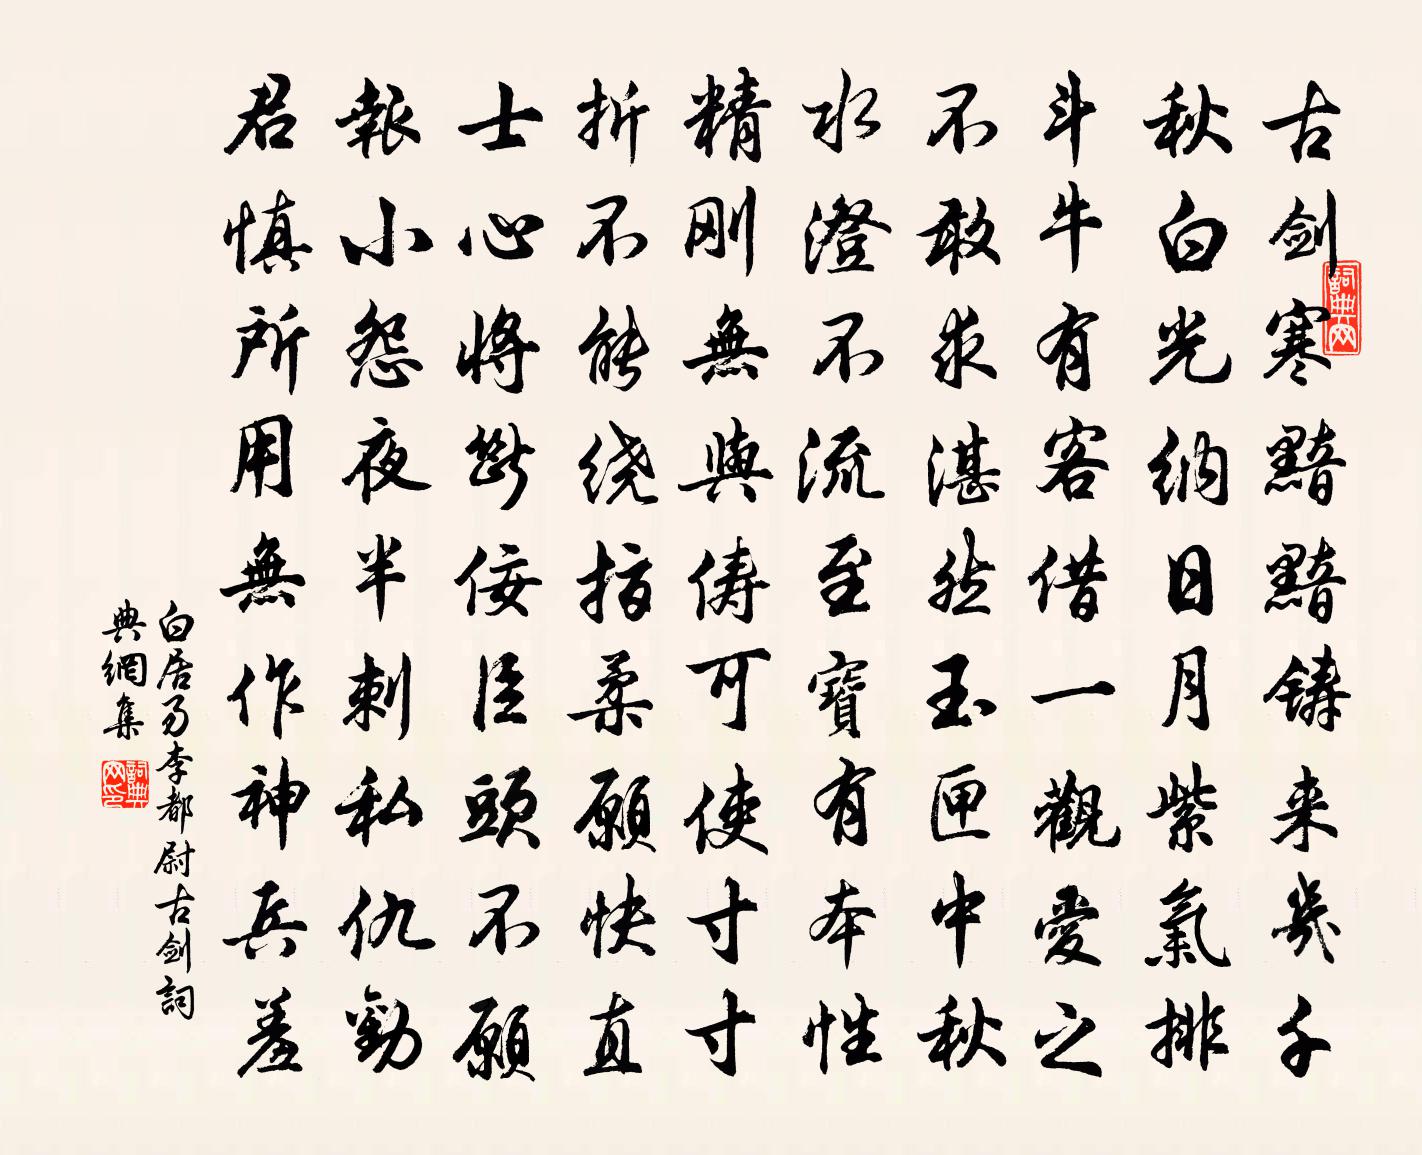 古剑寒黯黯鑄来幾千
秋白光纳日月紫氣排
斗牛有客借一觀愛之
不敢求湛然玉匣中秋
水澄不流至寶有本性
精刚無與俦可使寸寸
折不能绕指柔願快直
士心將斷佞臣頭不願
報小怨夜半刺私仇勸
君慎所用無作神兵羞
白居易李都尉古剑詞
典網集
詞典网
詞典网印